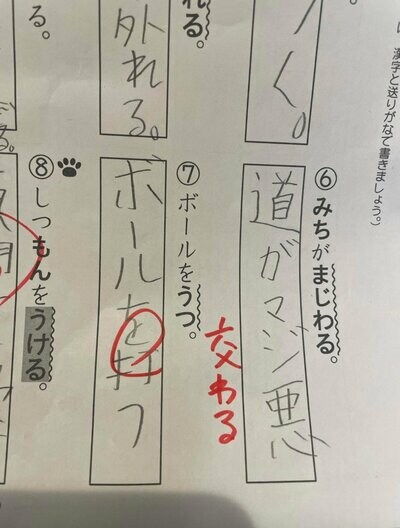 漢字と送りがなで書きましょう。)
く。
⑥みちがまじわる。
道がマジ悪
交わる
れる。
⑦ボールをうつ。
外れる。
ボールを打つ
る。
⑧しつもんをうける。